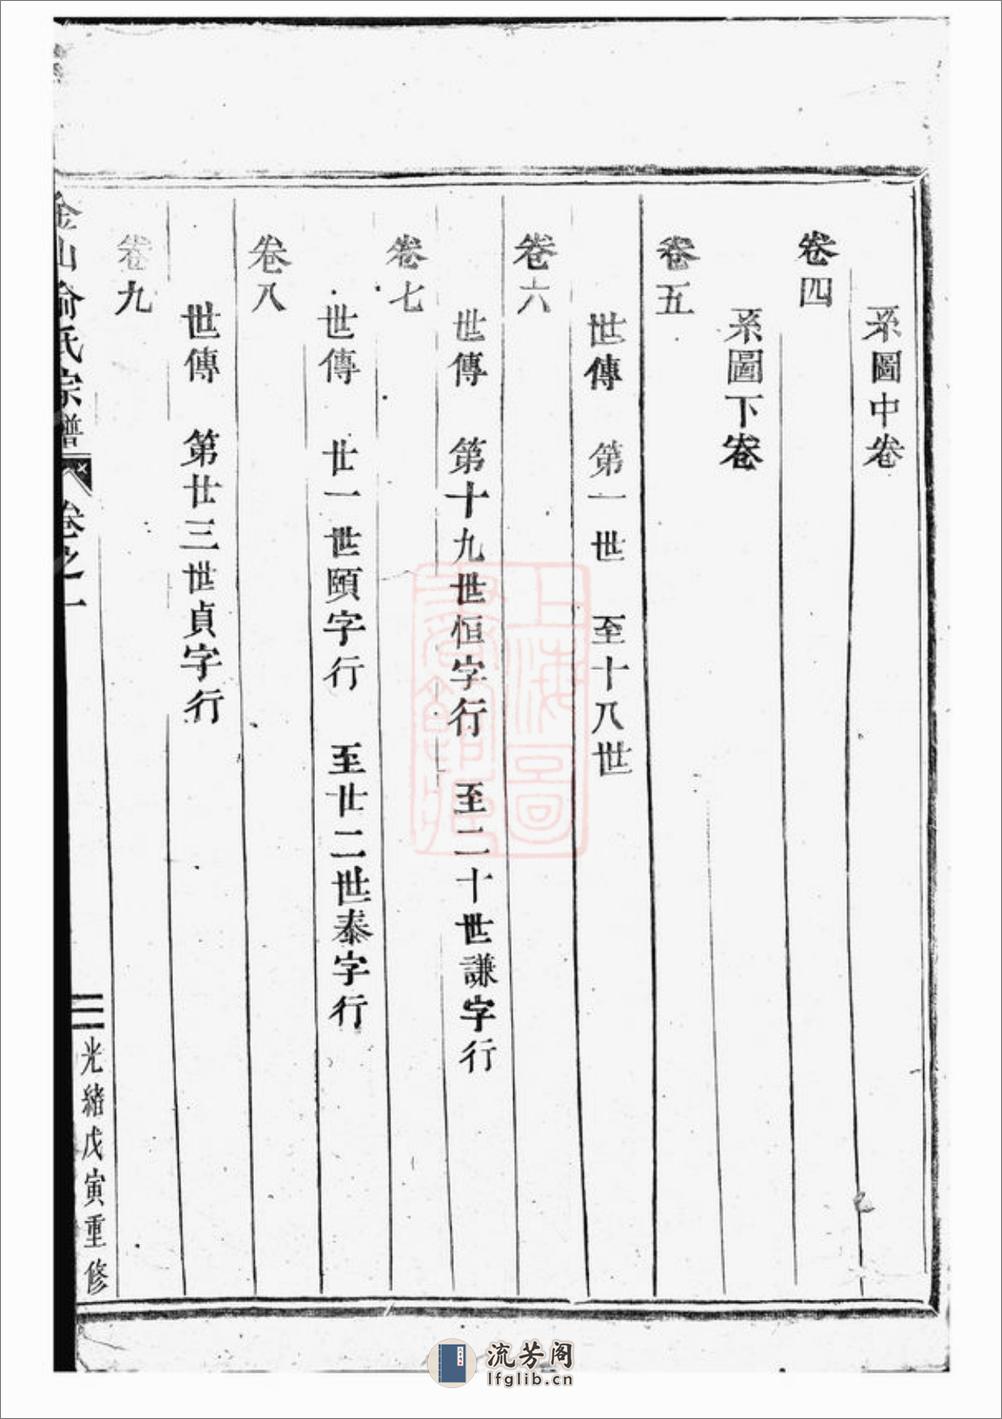 系圖中卷
卷四
系圖下卷
卷五
世傳 第一世 至十八世
卷六
世傳 第十九世恒字行 至二十世謙字行
卷七
世傳 廿一世頤字行 至廿二世泰字行
卷八
世傳 第廿三世貞字行
卷九
金山俞氏宗譜 卷之一 二 光緒戊寅重修
上海圖書館藏
流芳阁
lfglib.cn